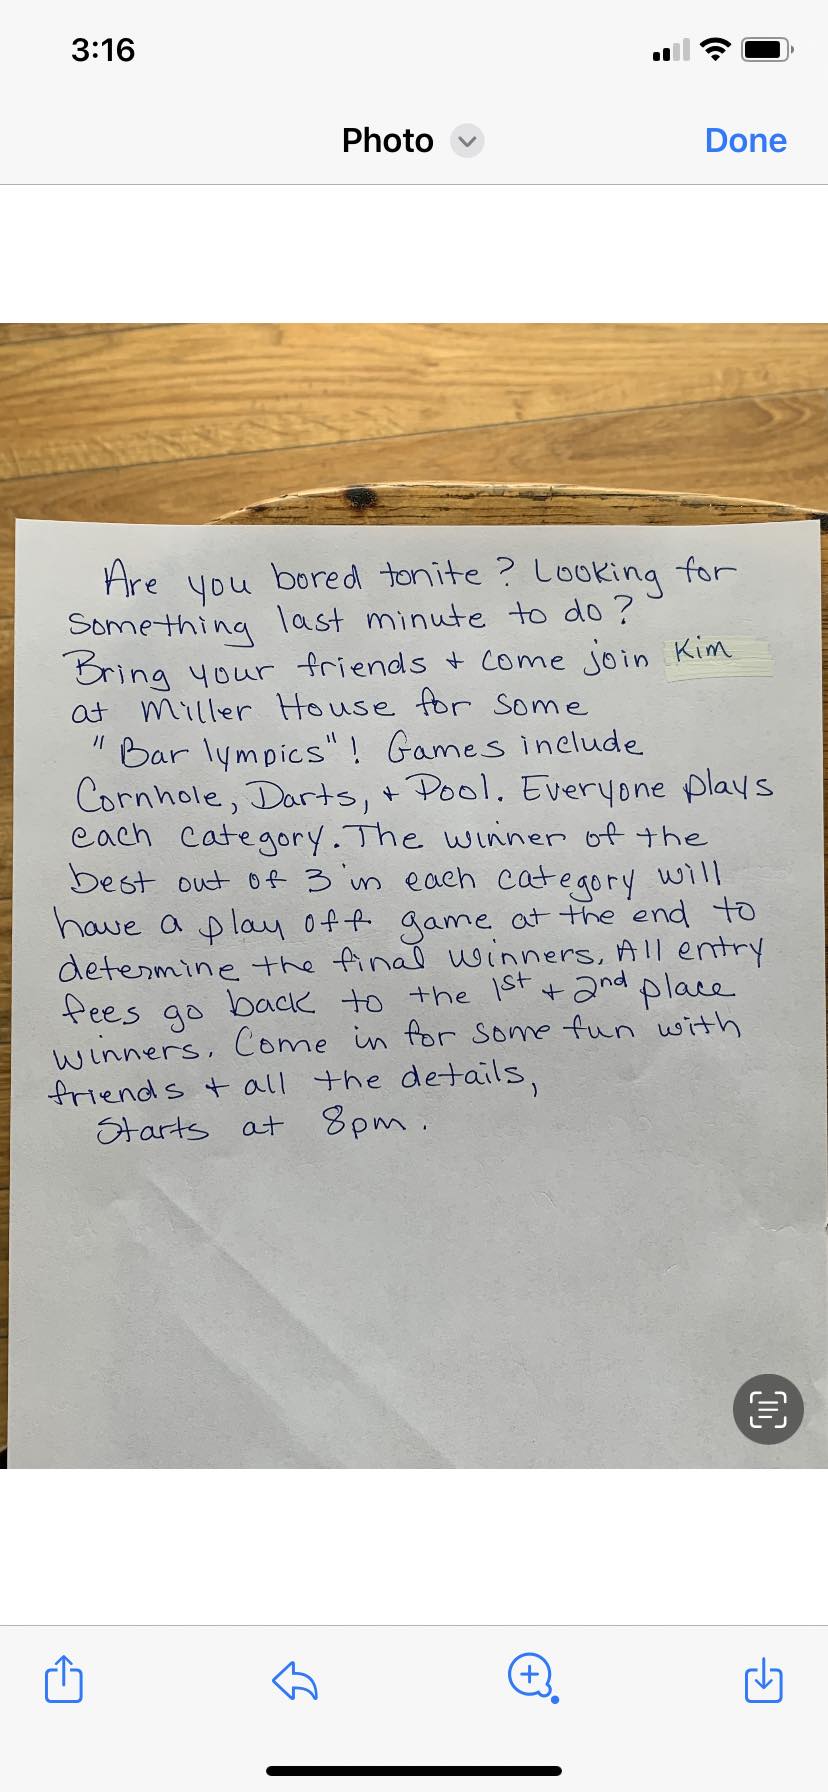 3:16
Photo
Done
Are you bored tonite? Looking for
something last minute to do?
Bring your friends + come join Kim
at Miller House for some
"Bar lympics"! Games include
Cornhole, Darts, + Pool. Everyone plays
each category. The winner of the
best out of 3 in each category will
have a play off game at the end to
determine the final winners. All entry
fees go back to the 1st + 2nd place
winners. Come in for some fun with
friends + all the details,
Starts at 8pm.